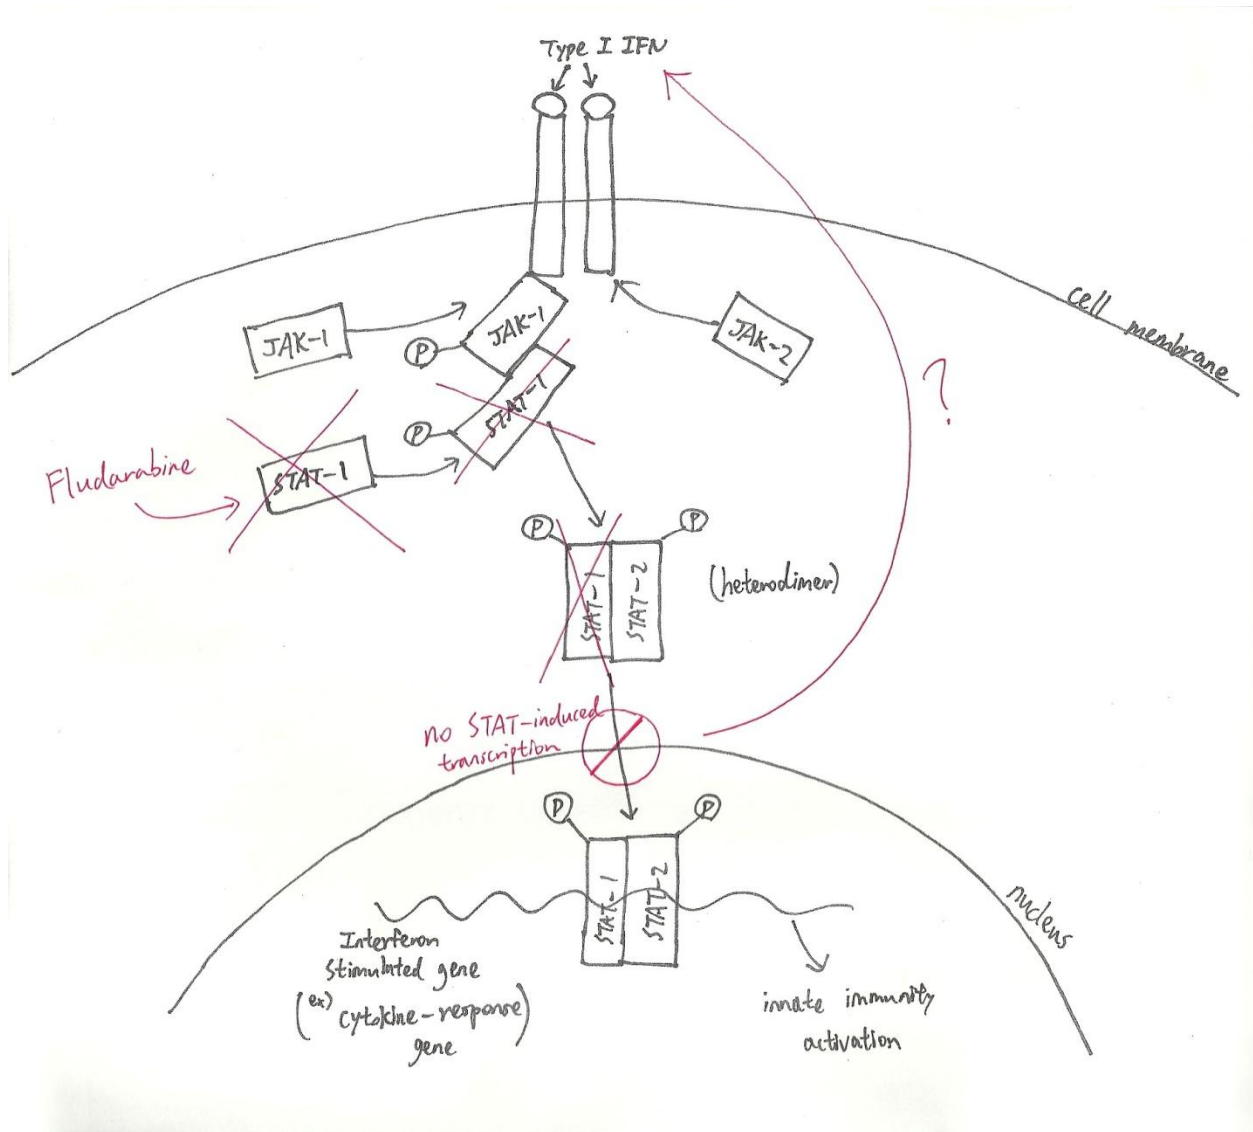 Type I IFN
cell membrane
JAK-1
JAK-1
P
JAK-2
?
STAT-1
P
Fludarabine
STAT-1
P
P
STAT-1
STAT-2
(heterodimer)
no STAT-induced
transcription
P
P
STAT-1
STAT-2
nucleus
Interferon
stimulated gene
(ex) cytokine-response
gene)
innate immunity
activation